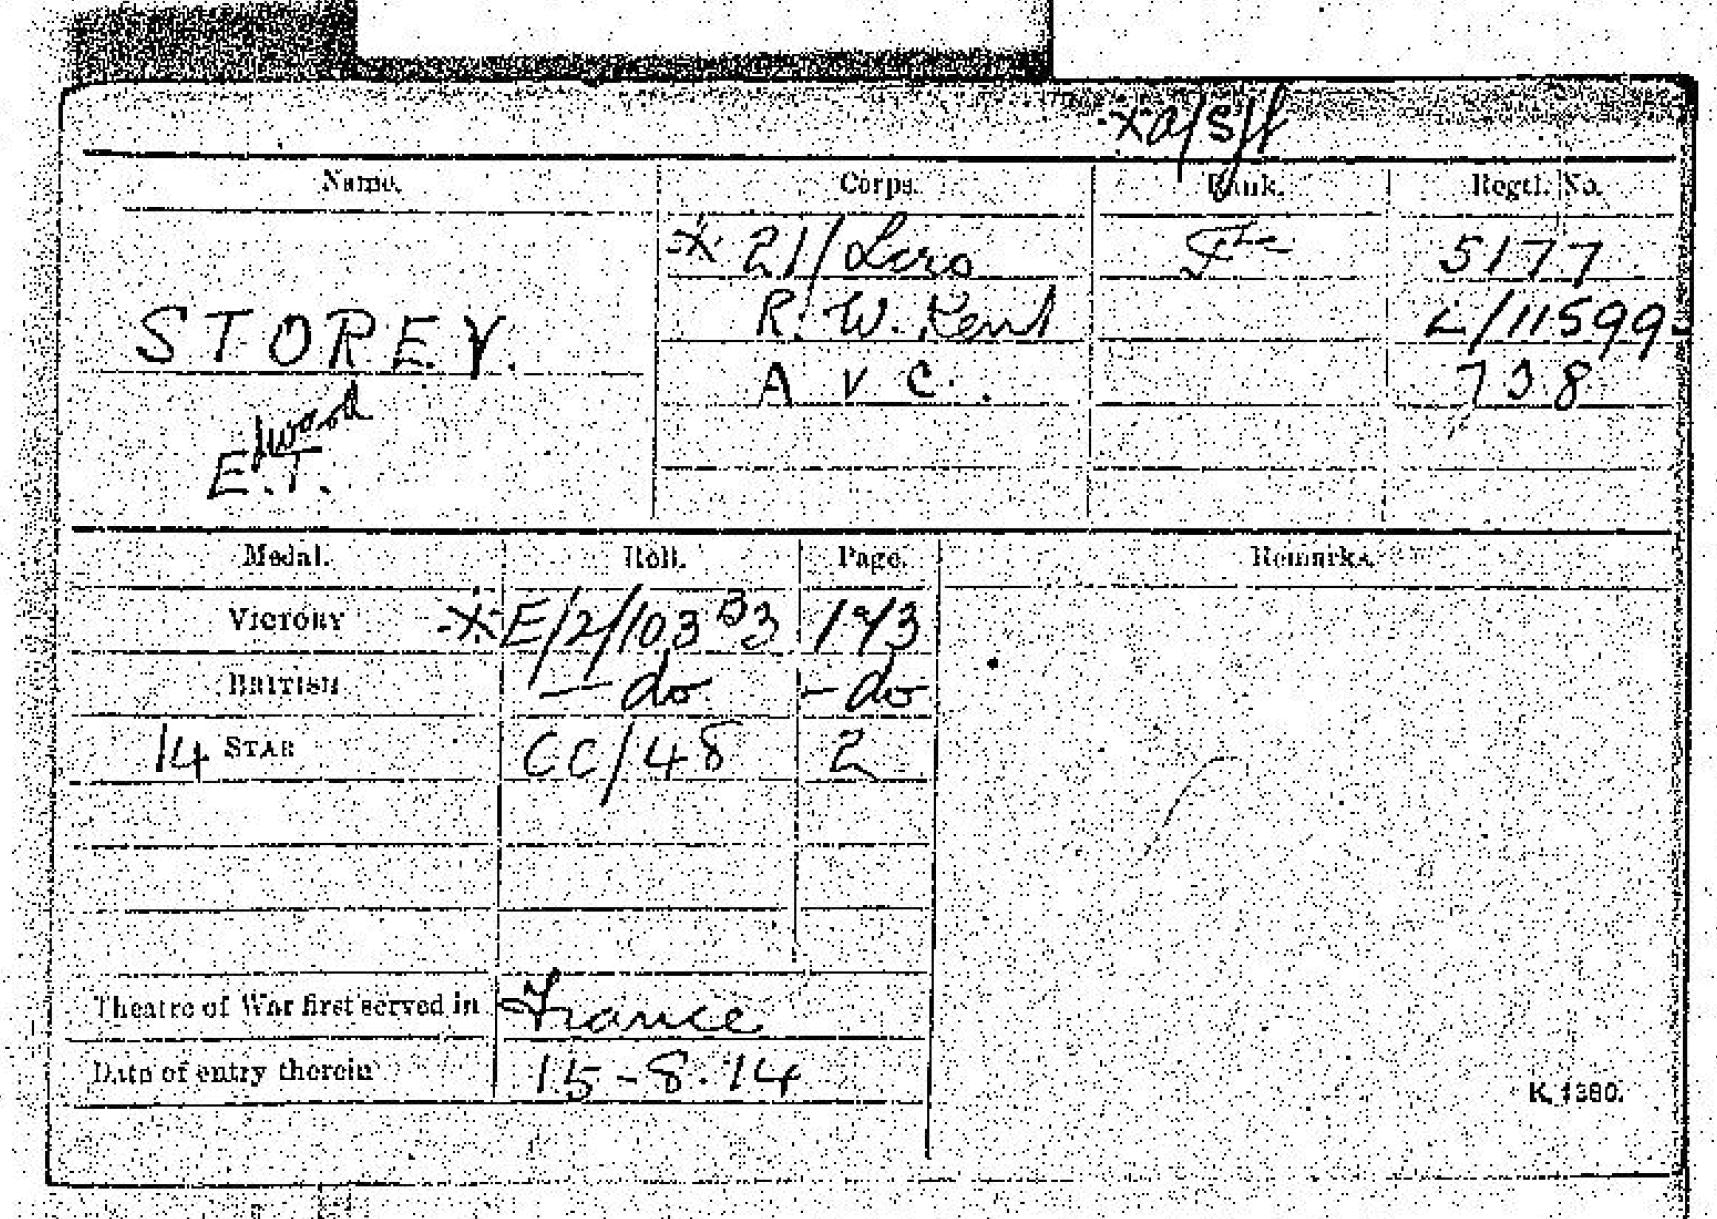 x a/S/f
Name. Corps. Rank. Regtl. No.
x 21/Lcrs Pte 5177
R. W. Kent L/11599
STOREY.
A V C. 738
Edward
E.T.
Medal. Roll. Page. Remarks.
VICTORY x E/2/103 B3 193
BRITISH — do - do
14 STAR CC/48 2
Theatre of War first served in France
Date of entry therein 15-8-14
K. 1380.